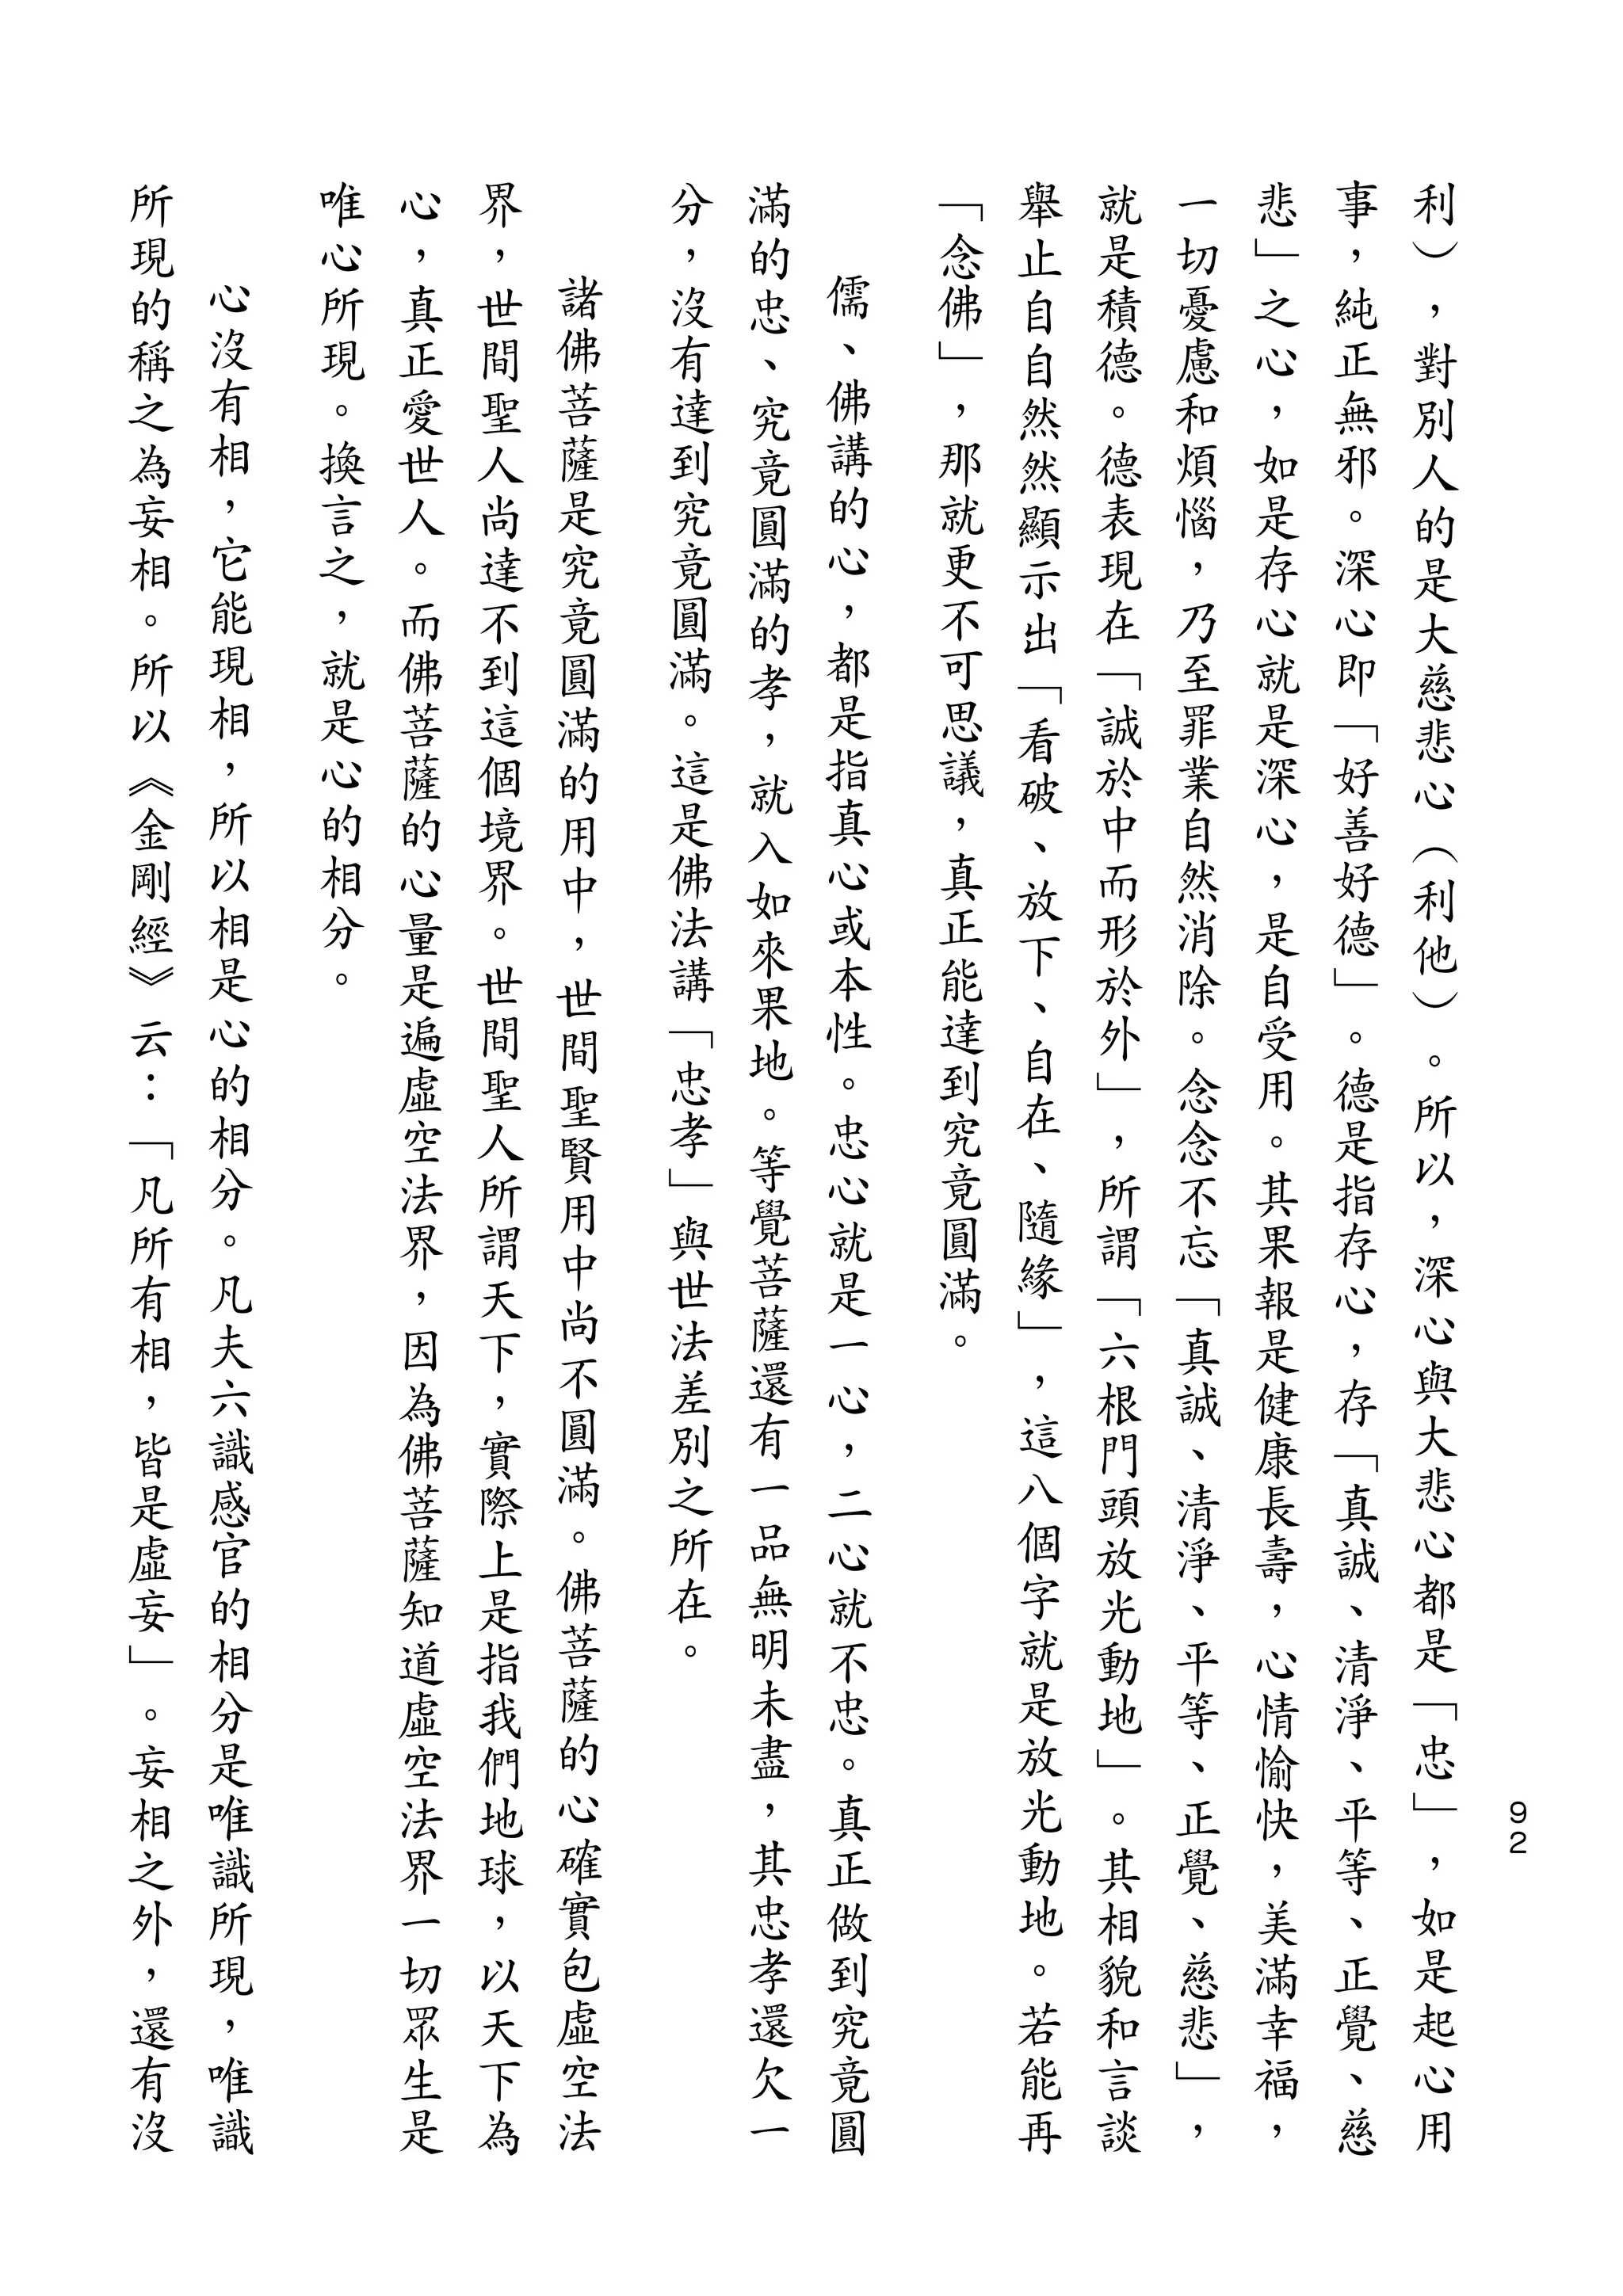 92
利），對別人的是大慈悲心（利他）。所以，深心與大悲心都是「忠」，如是起心用
事，純正無邪。深心即「好善好德」。德是指存心，存「真誠、清淨、平等、正覺、慈
悲」之心，如是存心就是深心，是自受用。其果報是健康長壽，心情愉快，美滿幸福，
一切憂慮和煩惱，乃至罪業自然消除。念念不忘「真誠、清淨、平等、正覺、慈悲」，
就是積德。德表現在「誠於中而形於外」，所謂「六根門頭放光動地」。其相貌和言談
舉止自自然然顯示出「看破、放下、自在、隨緣」，這八個字就是放光動地。若能再
「念佛」，那就更不可思議，真正能達到究竟圓滿。
儒、佛講的心，都是指真心或本性。忠心就是一心，二心就不忠。真正做到究竟圓
滿的忠、究竟圓滿的孝，就入如來果地。等覺菩薩還有一品無明未盡，其忠孝還欠一
分，沒有達到究竟圓滿。這是佛法講「忠孝」與世法差別之所在。
諸佛菩薩是究竟圓滿的用中，世間聖賢用中尚不圓滿。佛菩薩的心確實包虛空法
界，世間聖人尚達不到這個境界。世間聖人所謂天下，實際上是指我們地球，以天下為
心，真正愛世人。而佛菩薩的心量是遍虛空法界，因為佛菩薩知道虛空法界一切眾生是
唯心所現。換言之，就是心的相分。
心沒有相，它能現相，所以相是心的相分。凡夫六識感官的相分是唯識所現，唯識
所現的稱之為妄相。所以《金剛經》云：「凡所有相，皆是虛妄」。妄相之外，還有沒